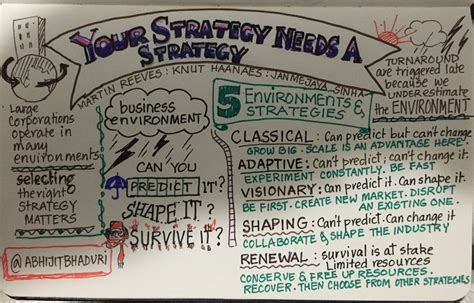 YOUR STRATEGY NEEDS A
STRATEGY
MARTIN REEVES: KNUT HAANAES: JANMEJAYA SINHA
TURNAROUND
are triggered late
because we
UNDERestimate
the ENVIRONMENT
Large
corporations
operate in
many
environments
selecting
the right
STRATEGY
MATTERS
@ABHIJITBHADURI
business
ENVIRONMENT
CAN YOU
PREDICT IT?
SHAPE IT?
SURVIVE IT?
5 ENVIRONMENTS &
STRATEGIES
CLASSICAL: Can predict but can't change
GROW BIG. SCALE IS AN ADVANTAGE HERE.
ADAPTIVE: Can't predict; can't change it.
EXPERIMENT CONSTANTLY. BE FAST
VISIONARY: Can predict it. Can shape it.
BE FIRST. CREATE NEW MARKET. DISRUPT
AN EXISTING ONE.
SHAPING: Can't predict. Can change it
COLLABORATE & SHAPE THE INDUSTRY
RENEWAL: survival is at stake
Limited resources
CONSERVE & FREE UP RESOURCES.
RECOVER. THEN CHOOSE FROM OTHER STRATEGIES